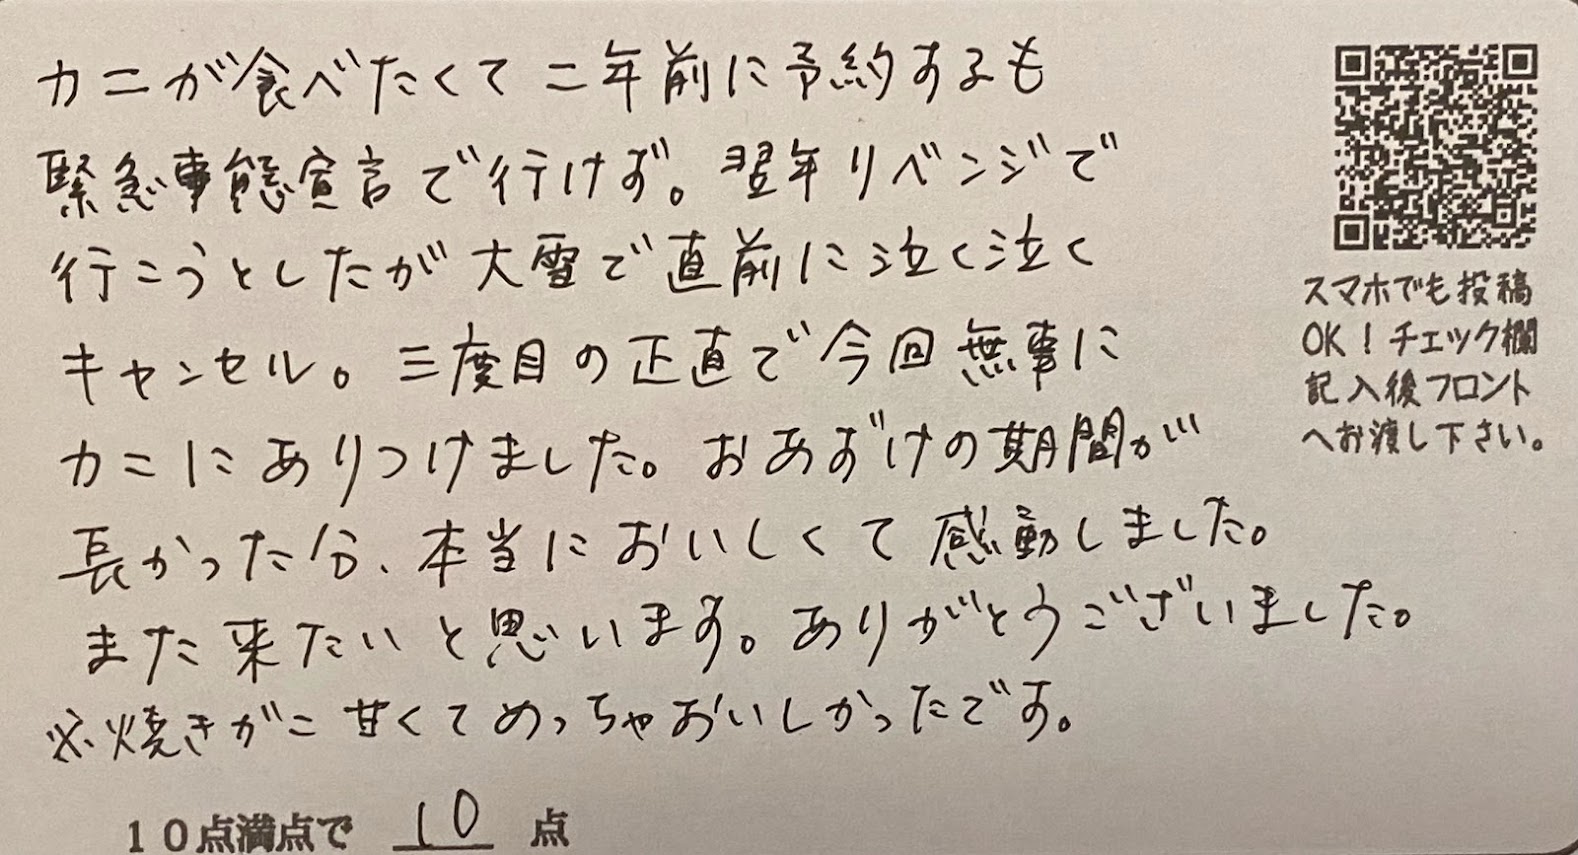 カニが食べたくて二年前に予約するも
緊急事態宣言で行けず。翌年リベンジで
行こうとしたが大雪で直前に泣く泣く
キャンセル。三度目の正直で今回無事に
カニにありつけました。おあずけの期間が
長かった分、本当においしくて感動しました。
また来たいと思います。ありがとうございました。
※焼きがに甘くてめっちゃおいしかったです。
10点満点で 10 点
スマホでも投稿
OK！チェック欄
記入後フロント
へお渡し下さい。